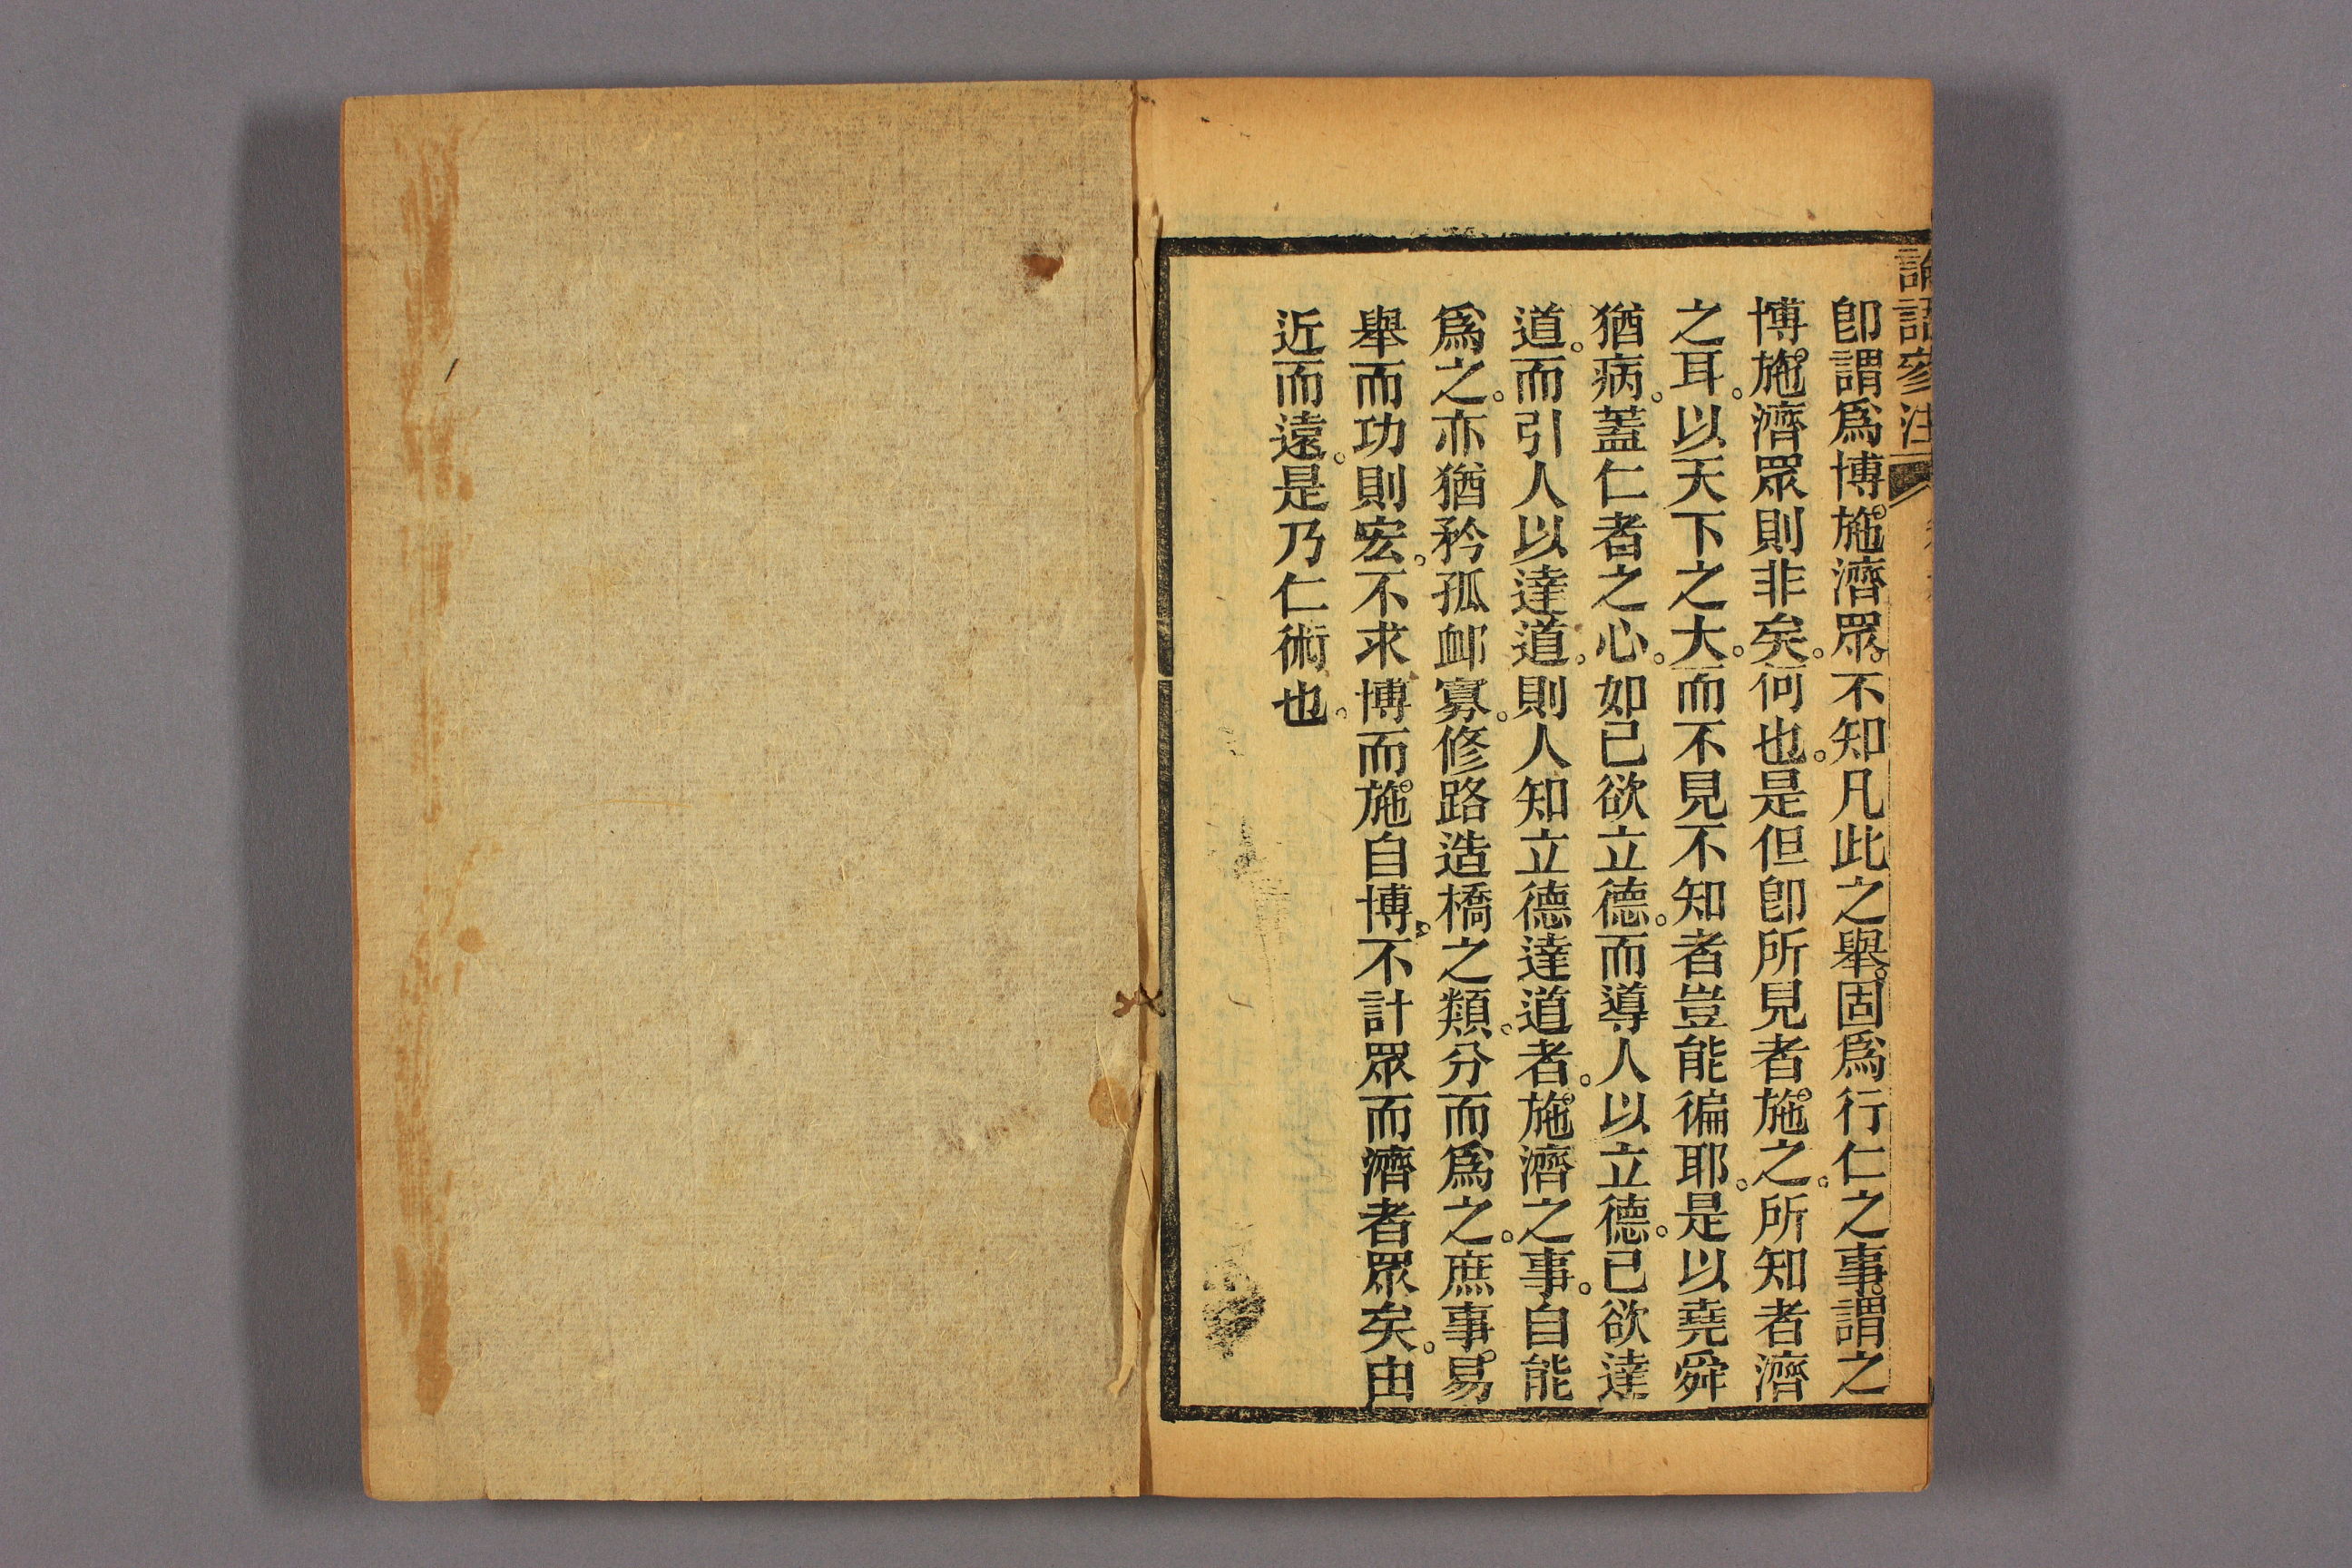 論語參注
卽謂爲博施濟眾。不知凡此之舉。固爲行仁之事。謂之
博施濟眾則非矣。何也。是但卽所見者施之。所知者濟
之耳。以天下之大。而不見不知者豈能徧耶。是以堯舜
猶病。蓋仁者之心。如己欲立德。而導人以立德。己欲達
道。而引人以達道。則人知立德達道者。施濟之事。自能
爲之。亦猶矜孤卹寡。修路造橋之類。分而爲之。庶事易
舉而功則宏。不求博而施自博。不計眾而濟者眾矣。由
近而遠。是乃仁術也。